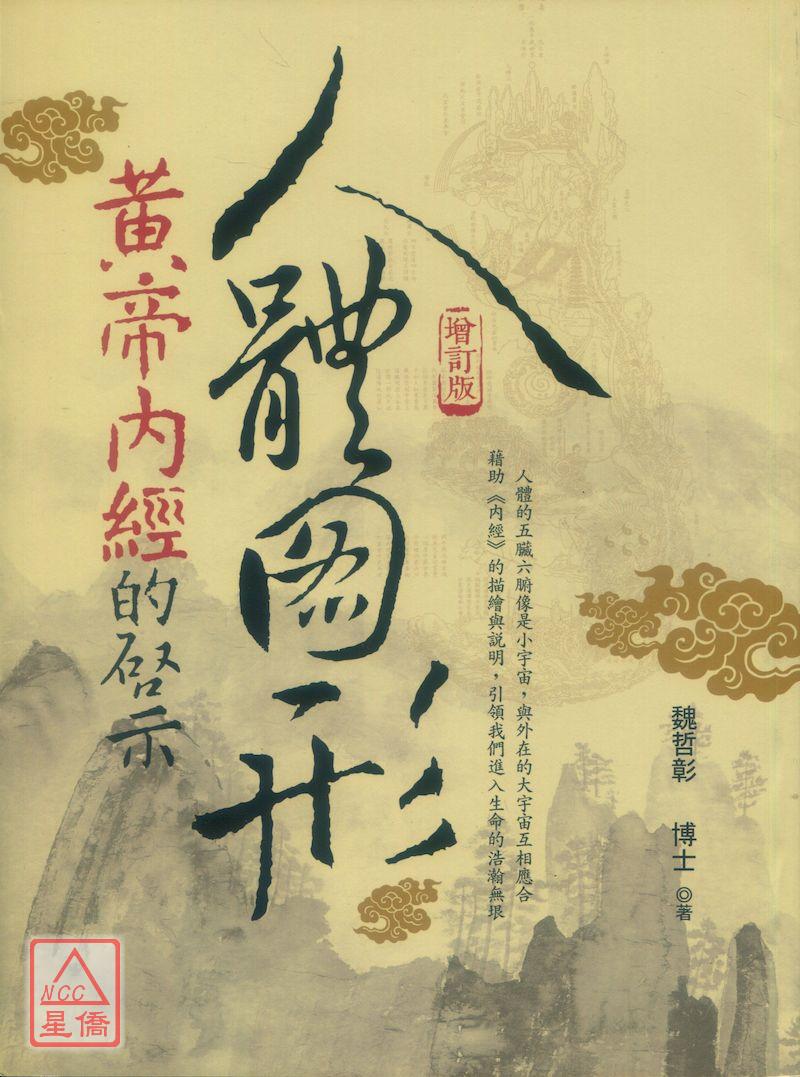 人體圖形
黃帝內經的啓示
增訂版
人體的五臟六腑像是小宇宙,與外在的大宇宙互相應合
藉助《內經》的描繪與說明,引領我們進入生命的浩瀚無垠
魏哲彰 博士◎著
NCC
星僑